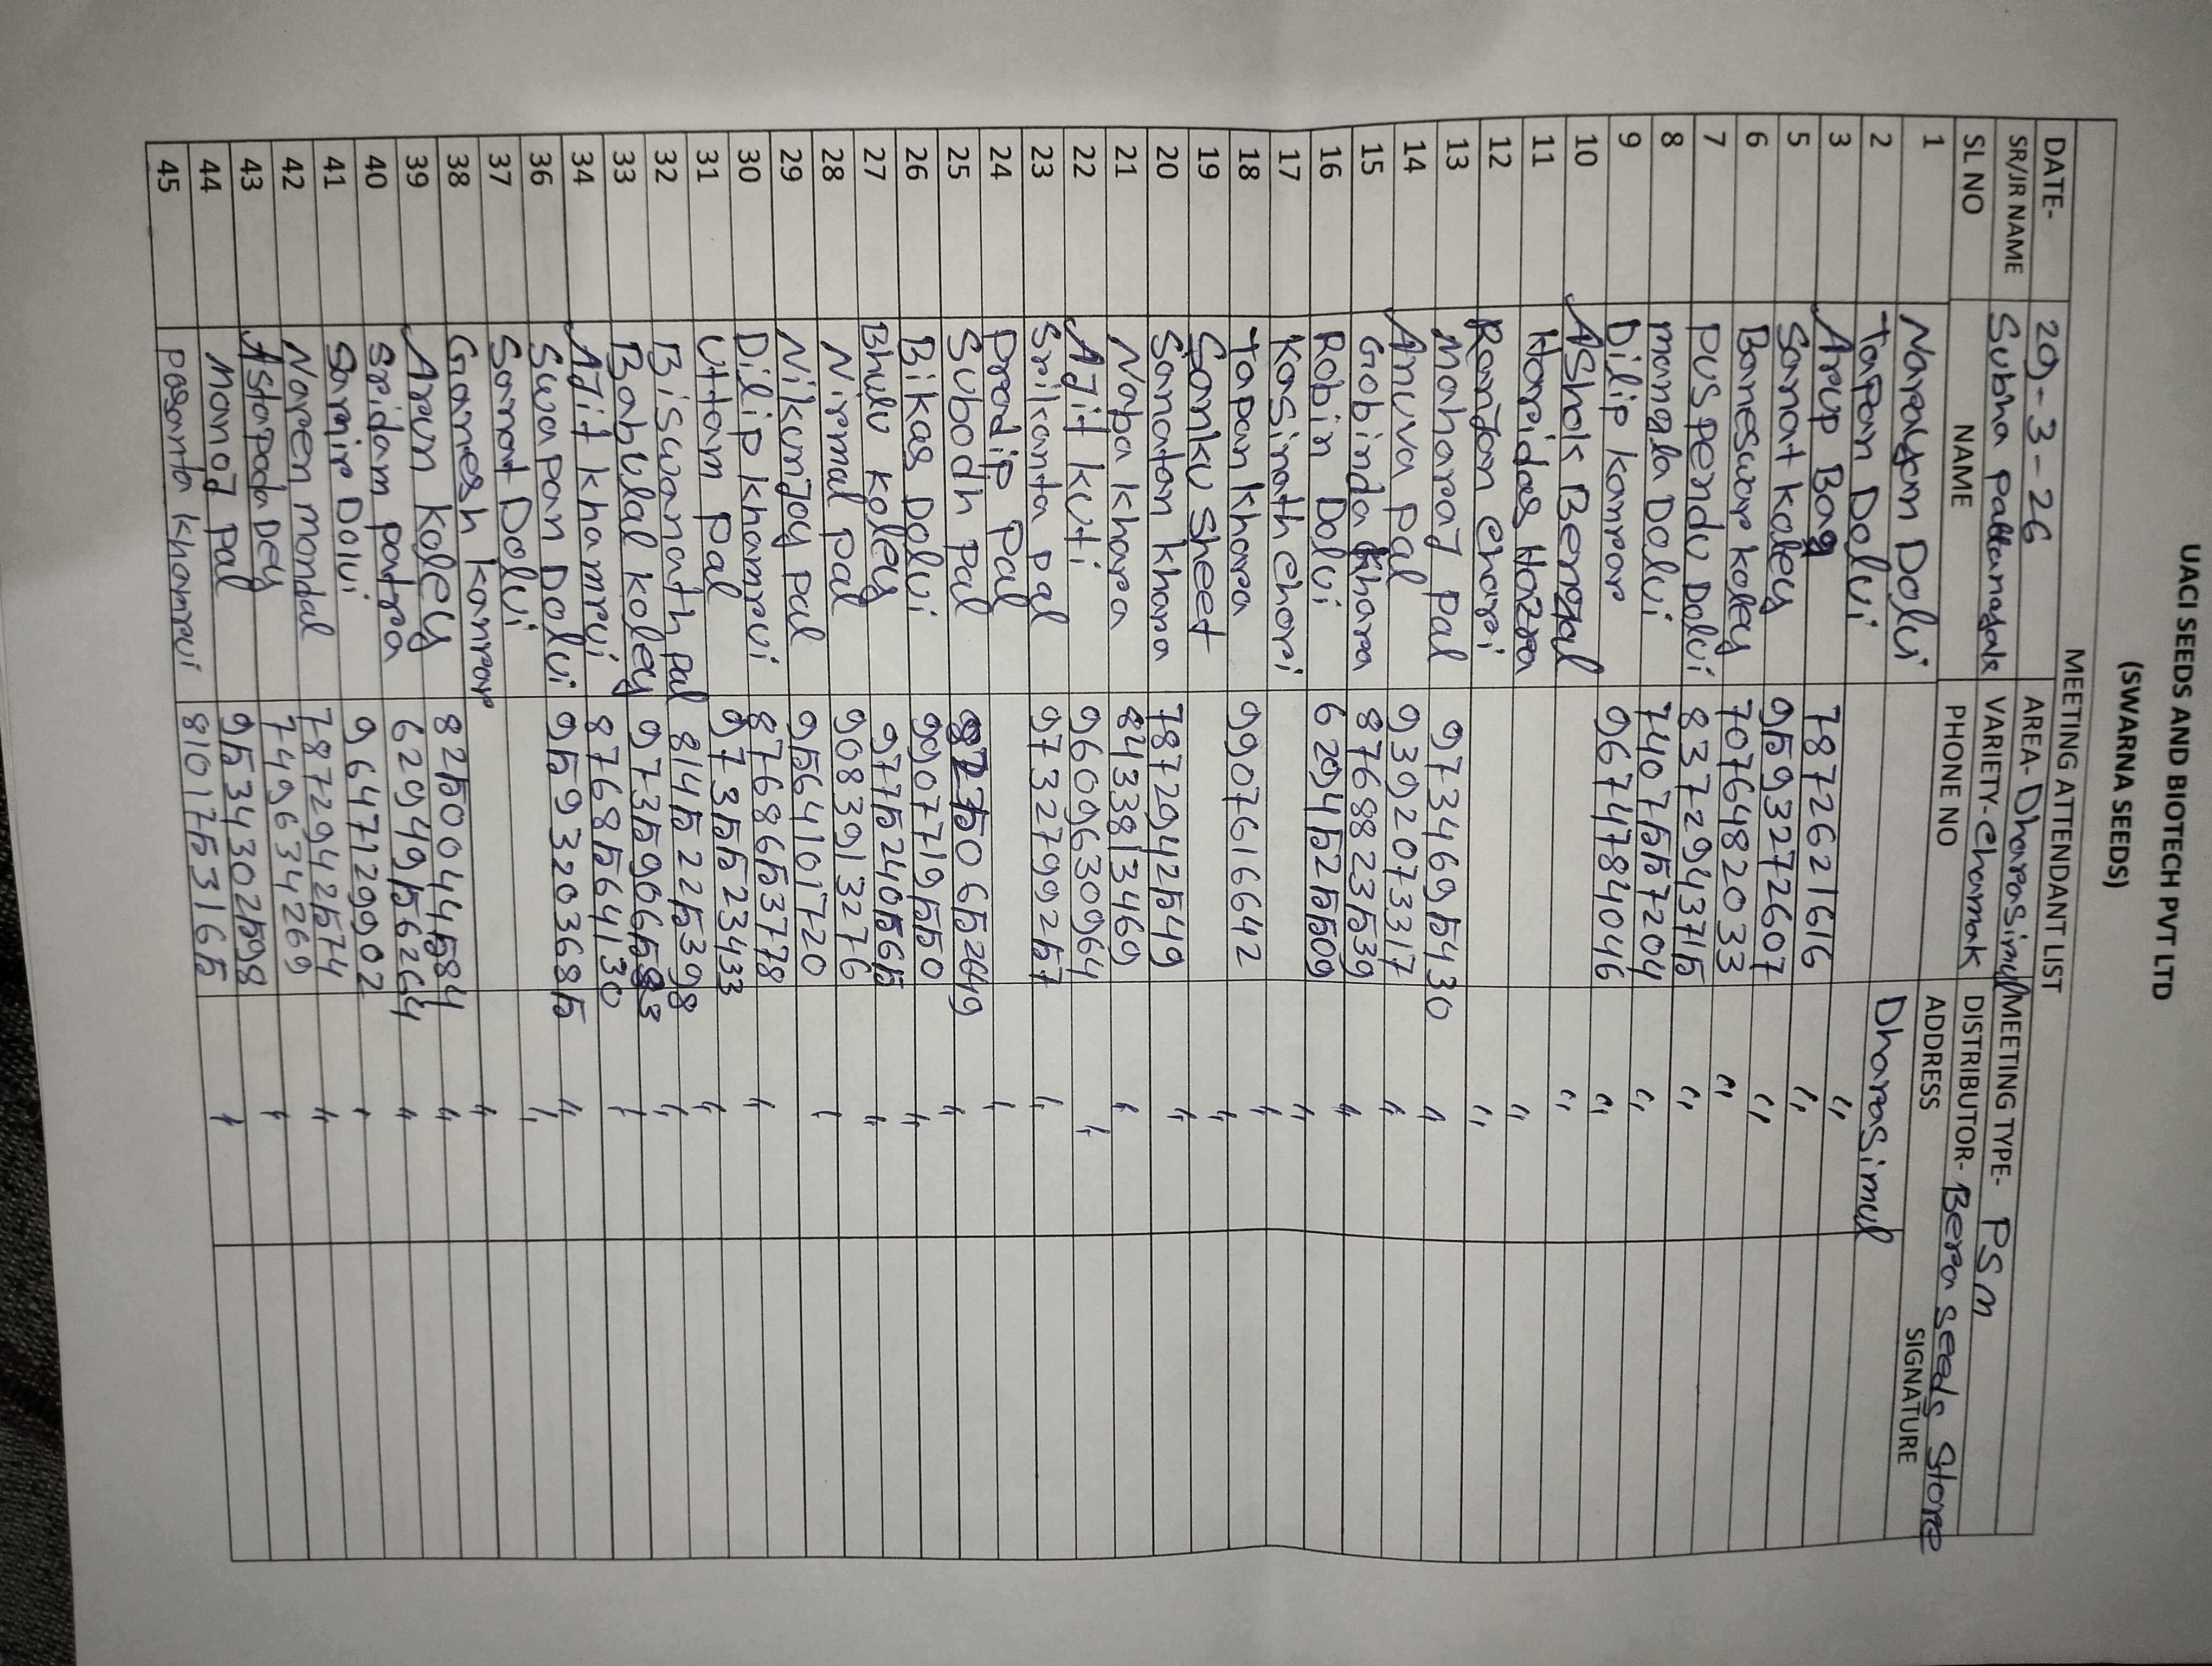 UACI SEEDS AND BIOTECH PVT LTD
(SWARNA SEEDS)
MEETING ATTENDANT LIST
DATE- 29-3-26 AREA- Dharasimul MEETING TYPE- PSM
SR/JR NAME Subha Pattanayak VARIETY- Charmak DISTRIBUTOR- Bera Seeds Store
SL NO NAME PHONE NO ADDRESS SIGNATURE
1 Narayan Dolui Dharasimul
2 Tapan Dolui "
3 Arup Bag 7872621616 "
5 Sanat Koley 9593272607 "
6 Baneswar Koley 7076482033 "
7 Puspendu Dolui 8372943715 "
8 Mangala Dolui 7407557204 "
9 Dilip Kanrar 9674784046 "
10 AShok Berozal "
11 Haridas Hazra "
12 Ranjan Chari "
13 Maharaj Pal 9734695430 "
14 Anuva Pal 9392073317 "
15 Gobinda Khara 8768823539 "
16 Robin Dolui 6294525509 "
17 Kasinath Chari "
18 Tapan Khara 9907616642 "
19 Sanku Sheet "
20 Sanatan Khara 7872942549 "
21 Naba Khara 8433813469 "
22 AJit Kuti 9609630964 "
23 Srikanta Pal 9732799257 "
24 Pradip Pal "
25 Subodh Pal "
26 Bikas Dolui 9907719550 "
27 Bhulu Koley 9775240565 "
28 Nirmal Pal 9083913276 "
29 Nikunjoy Pal 9564101720 "
30 Dilip Khamrui 8768653778 "
31 Uttam Pal 9735523433 "
32 Biswanath Pal 8145225398 "
33 Babulal Koley "
34 AJit Khamrui 8768564130 "
36 Swapan Dolui 9593203685 "
37 Sanat Dolui "
38 Ganesh Kanrar "
39 Arun Koley 8250044584 "
40 Sridam Patra 6294956264 "
41 Samir Dolui 9647129902 "
42 Naren Mondal 7872942574 "
43 Astapada Dey 749634269 "
44 Manoj Pal 9534302598 "
45 Pasanta Khamrui 8101753165 "